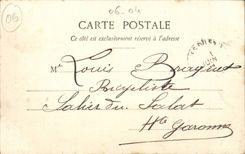 06-04
06
CARTE POSTALE
Ce côté est exclusivement réservé à l'adresse
M Louis
Bicycliste
Salies du Salat
Hte Garonne